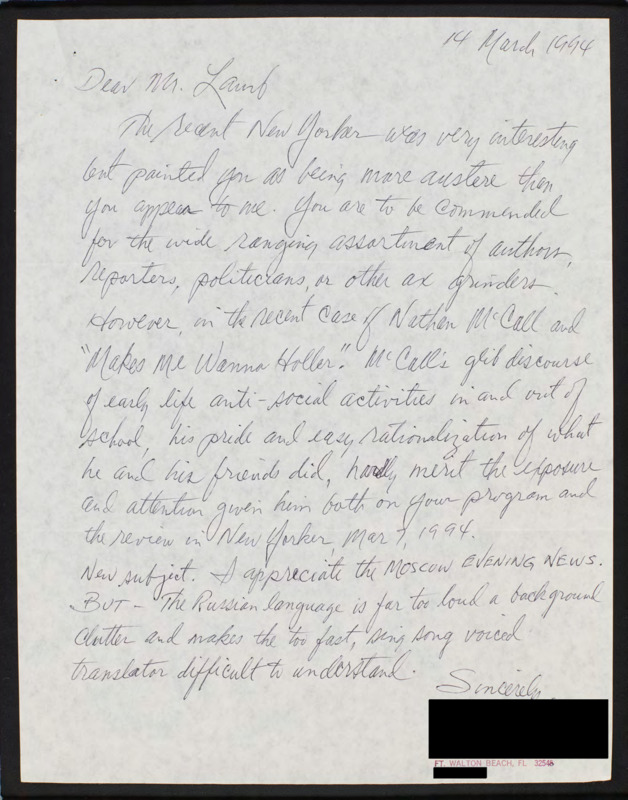 14 March 1994
Dear Mr. Lamb
The recent New Yorker was very interesting
but painted you as being more austere then
you appear to me. You are to be commended
for the wide ranging assortment of authors,
reporters, politicians, or other ax grinders.
However, in the recent case of Nathan McCall and
"Makes Me Wanna Holler". McCall's glib discourse
of early life anti-social activities in and out of
school, his pride and easy rationalization of what
he and his friends did, hardly merit the exposure
and attention given him both on your program and
the review in New Yorker, Mar 7, 1994.
New subject. I appreciate the MOSCOW EVENING NEWS.
BUT - The Russian language is far too loud a background
clutter and makes the too fast, sing song voiced
translator difficult to understand.
Sincerely,
FT. WALTON BEACH, FL 32548